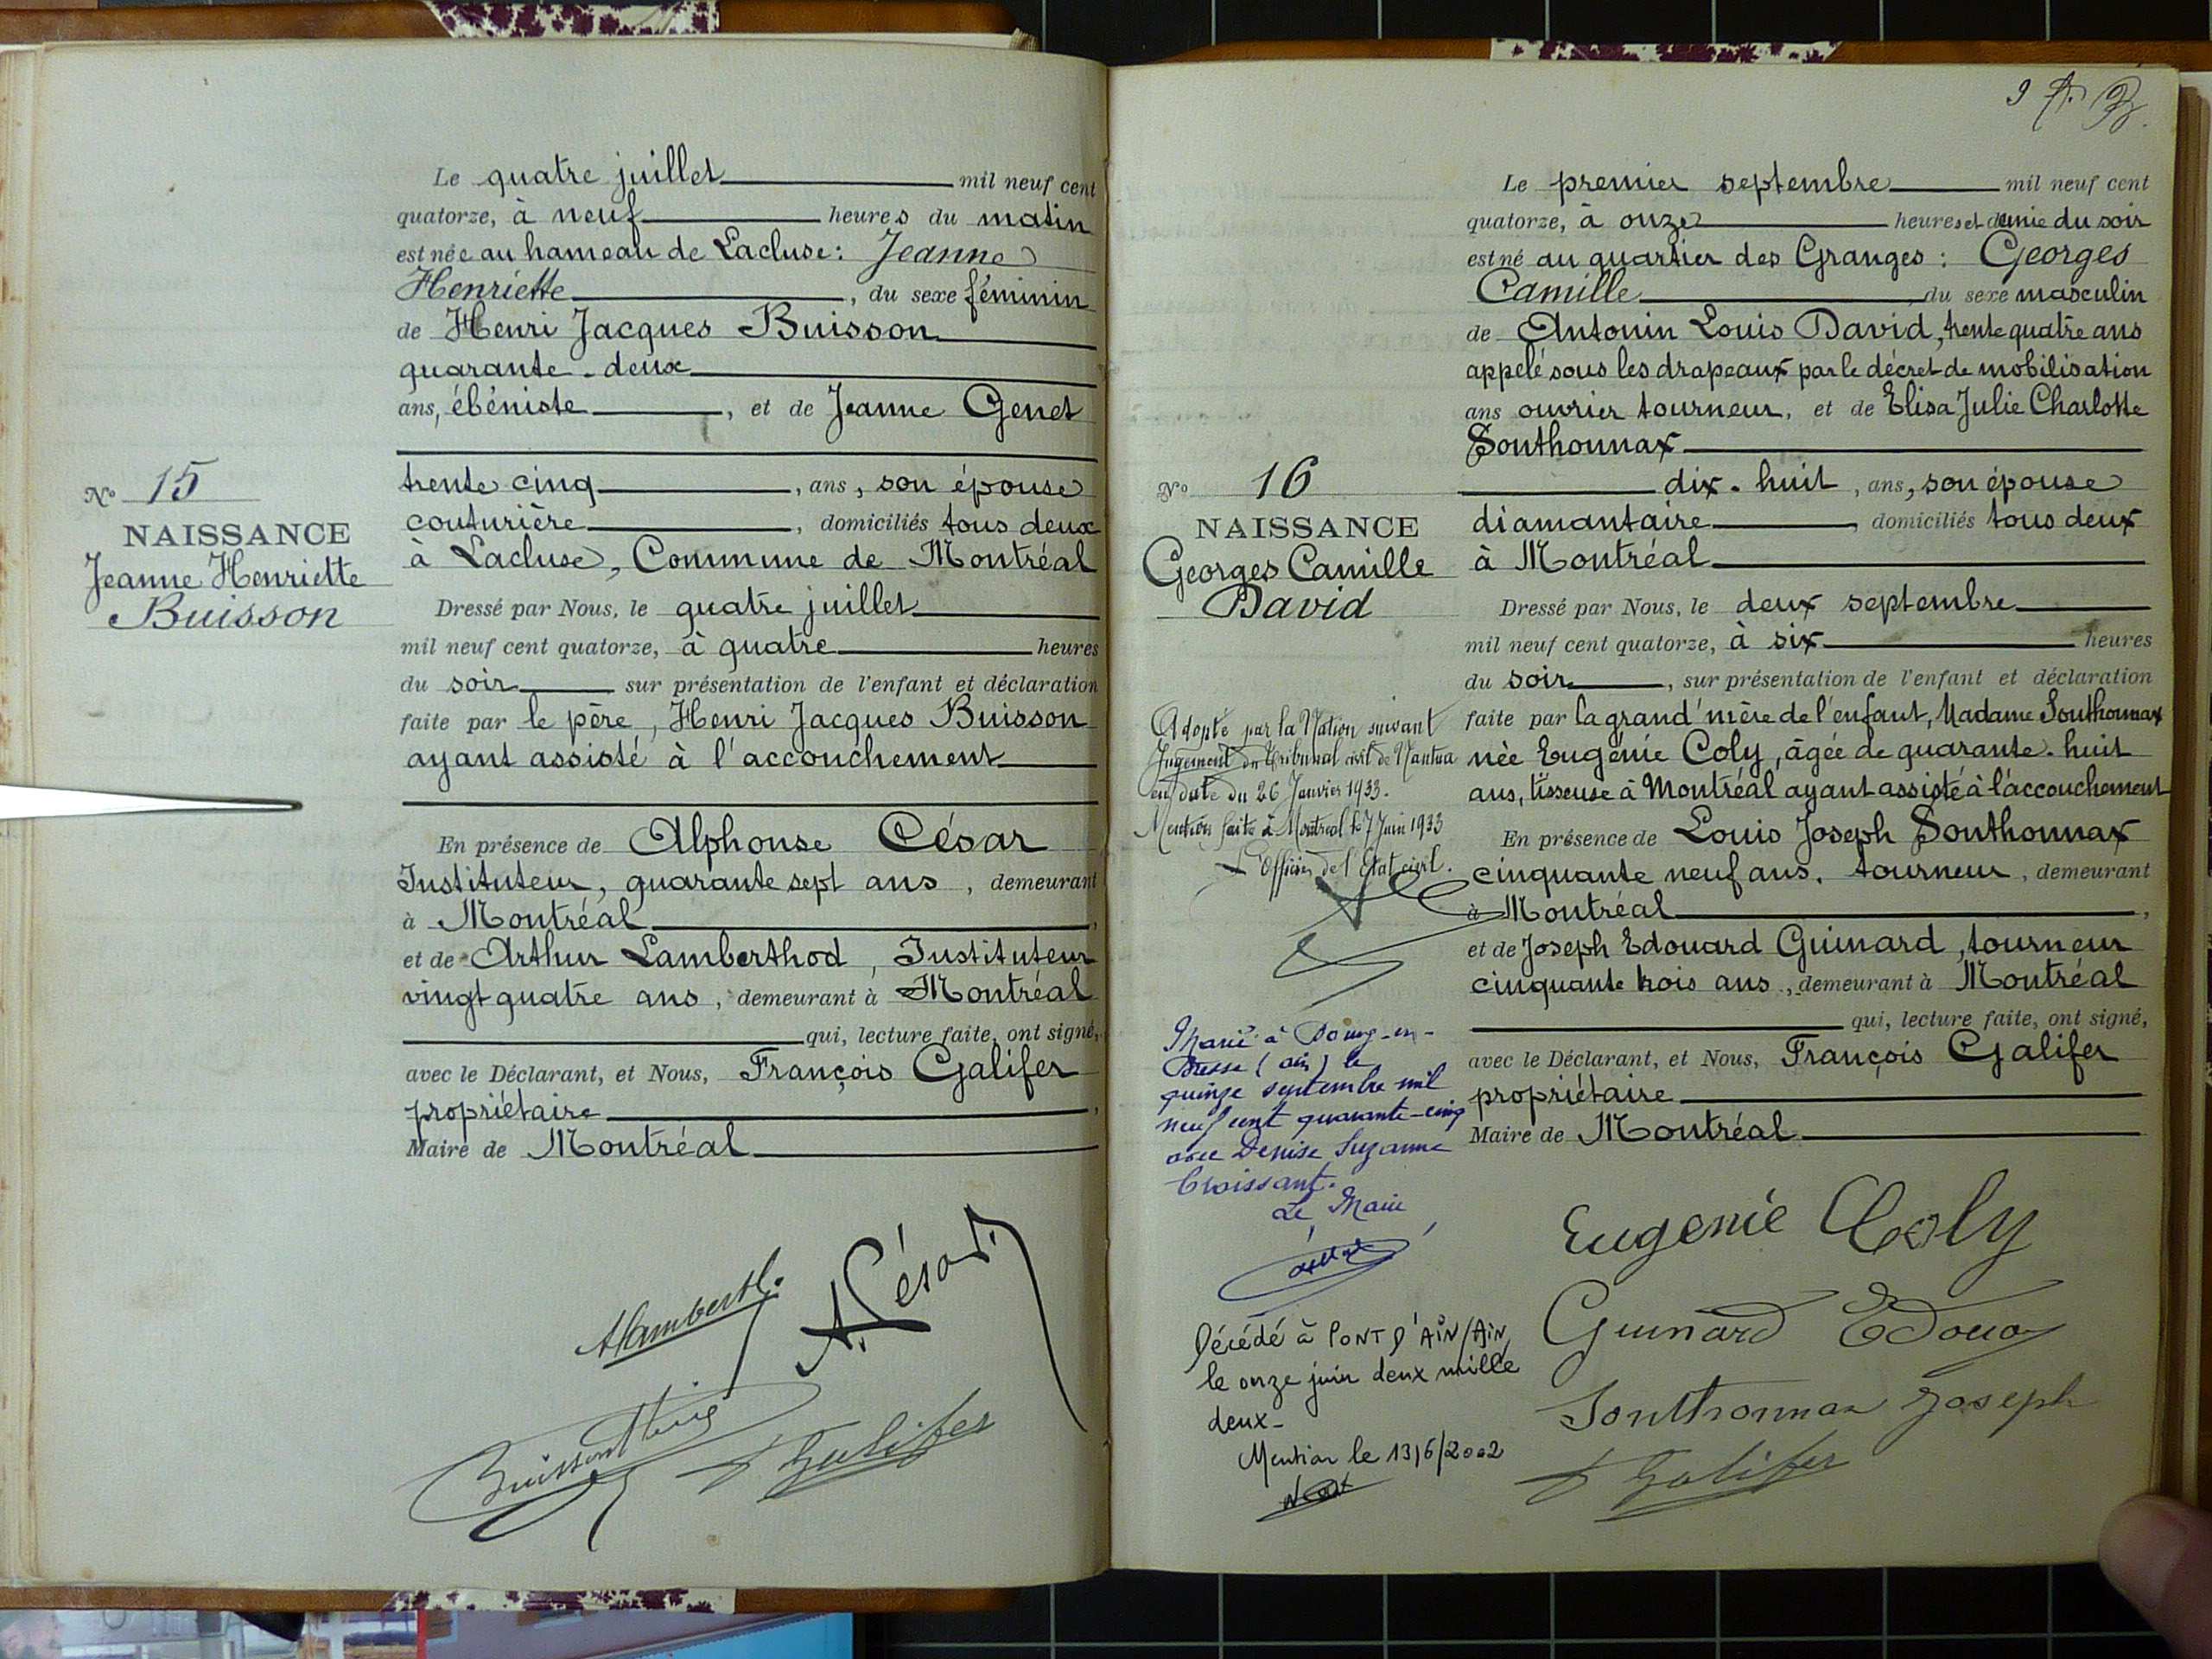 Le quatre juillet mil neuf cent
quatorze, à neuf heures du matin
est née au hameau de Lacluse : Jeanne
Henriette, du sexe féminin
de Henri Jacques Buisson
quarante-deux
ans, ébéniste, et de Jeanne Genet
trente cinq, ans, son épouse
couturière, domiciliés tous deux
à Lacluse, Commune de Montréal
Dressé par Nous, le quatre juillet
mil neuf cent quatorze, à quatre heures
du soir sur présentation de l'enfant et déclaration
faite par le père, Henri Jacques Buisson
ayant assisté à l'accouchement
En présence de Alphonse César
Instituteur, quarante sept ans, demeurant
à Montréal,
et de Arthur Lamberthod, Instituteur
vingt quatre ans, demeurant à Montréal
qui, lecture faite, ont signé,
avec le Déclarant, et Nous, François Galifer
propriétaire,
Maire de Montréal
No 15
NAISSANCE
Jeanne Henriette
Buisson
A. César
F Galifer
9
Le premier septembre mil neuf cent
quatorze, à onze heures et demie du soir
est né au quartier des Granges : Georges
Camille, du sexe masculin
de Antonin Louis David, trente quatre ans
appelé sous les drapeaux par le décret de mobilisation
ans ouvrier tourneur, et de Elisa Julie Charlotte
Sonthonnax
dix-huit, ans, son épouse
diamantaire, domiciliés tous deux
à Montréal
Dressé par Nous, le deux septembre
mil neuf cent quatorze, à six heures
du soir, sur présentation de l'enfant et déclaration
faite par la grand'mère de l'enfant, Madame Sonthonnax
née Eugénie Coly, âgée de quarante-huit
ans, tisseuse à Montréal ayant assisté à l'accouchement
En présence de Louis Joseph Sonthonnax
cinquante neuf ans, tourneur, demeurant
à Montréal,
et de Joseph Edouard Guinard, tourneur
cinquante trois ans, demeurant à Montréal
qui, lecture faite, ont signé,
avec le Déclarant, et Nous, François Galifer
propriétaire
Maire de Montréal
No 16
NAISSANCE
Georges Camille
David
Adopté par la Nation suivant
Jugement du Tribunal civil de Nantua
en date du 26 Janvier 1933.
Mention faite à Montréal le 7 Juin 1933
L'Officier de l'Etat civil.
Marié à Bourg-en-
Bresse (Ain) le
quinze septembre mil
neuf cent quarante-cinq
avec Denise Suzanne
Croissant.
Le Maire
Décédé à PONT D'AIN/AIN
le onze juin deux mille
deux-
Mention le 13/6/2002
Eugenie Coly
Guinard Edoua
Sonthonnax Joseph
F Galifer